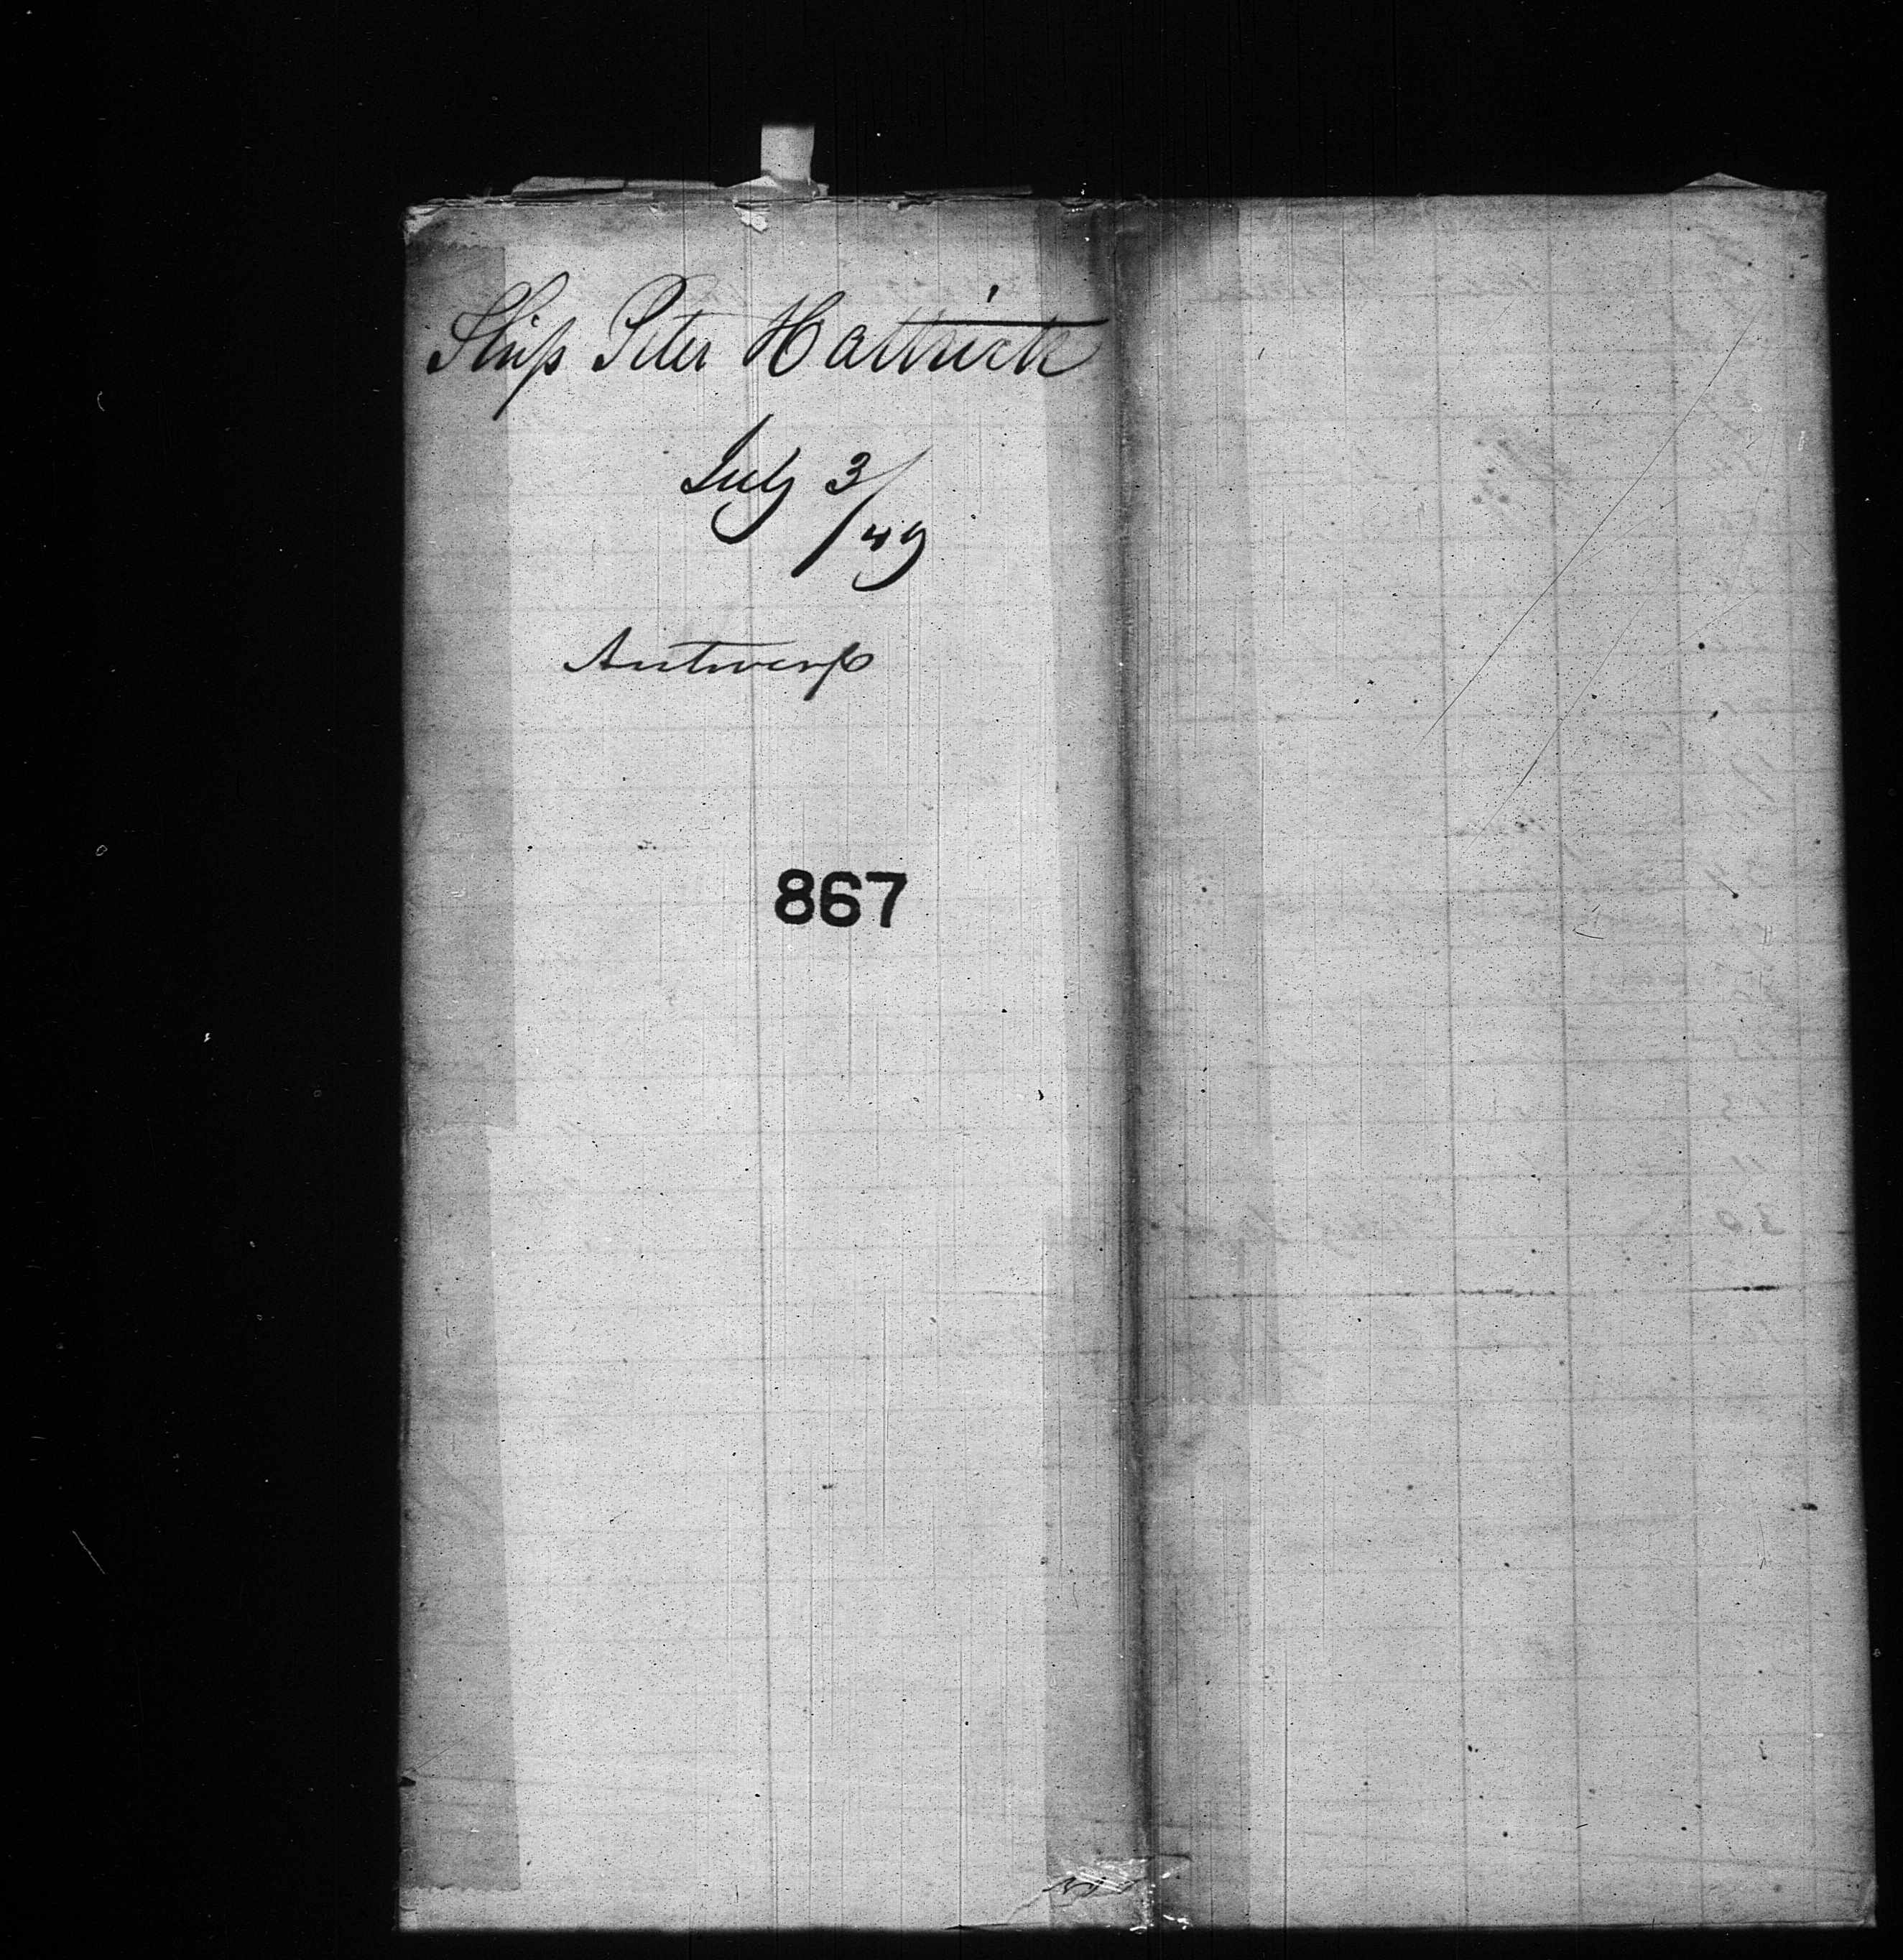 Ship Peter Hattrick
July 3/49
Antwerp
867